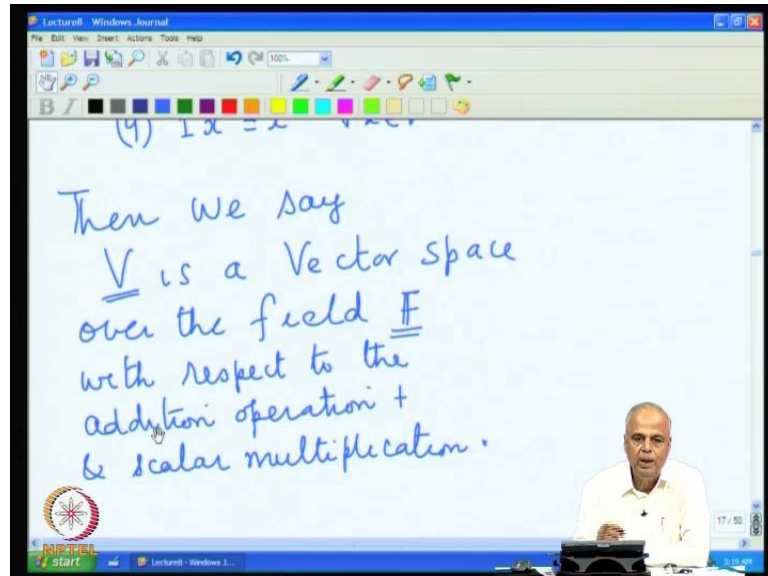 Lecture8 - Windows Journal
File Edit View Insert Actions Tools Help
100%
B I
Then we say
V is a Vector space
over the field F
with respect to the
addition operation +
& scalar multiplication.
17 / 50
NPTEL
start Lecture8 - Windows J... 3:19 AM